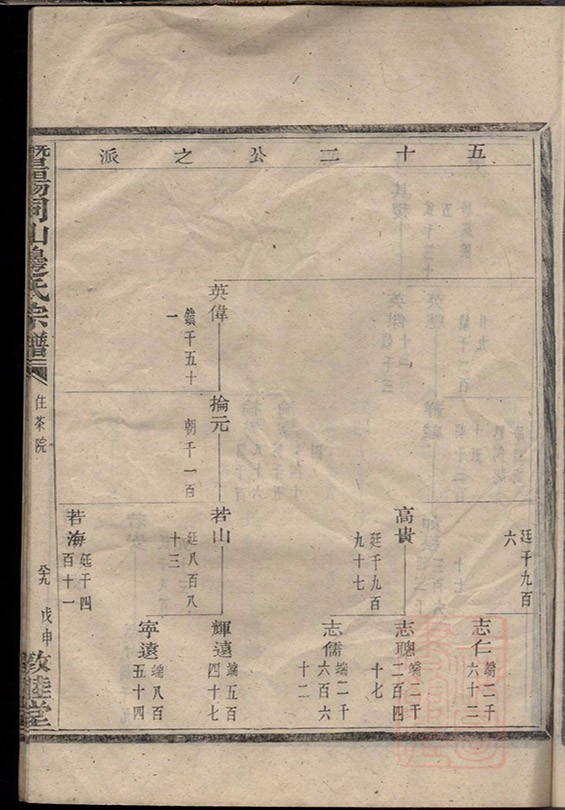 五十二公之派
廷千九百六
志仁 端二千六十二
高貴 廷千九百九十七
志聰 端二千二百四十七
志儒 端二千六百六十二
英偉 鎮千五十一
掄元 朝千一百
若山 廷八百八十三
輝遠 端五百四十七
寧遠 端八百五十四
若海 廷千四百十一
暨陽同山邊氏宗譜
住茶院
戊申
敦睦堂